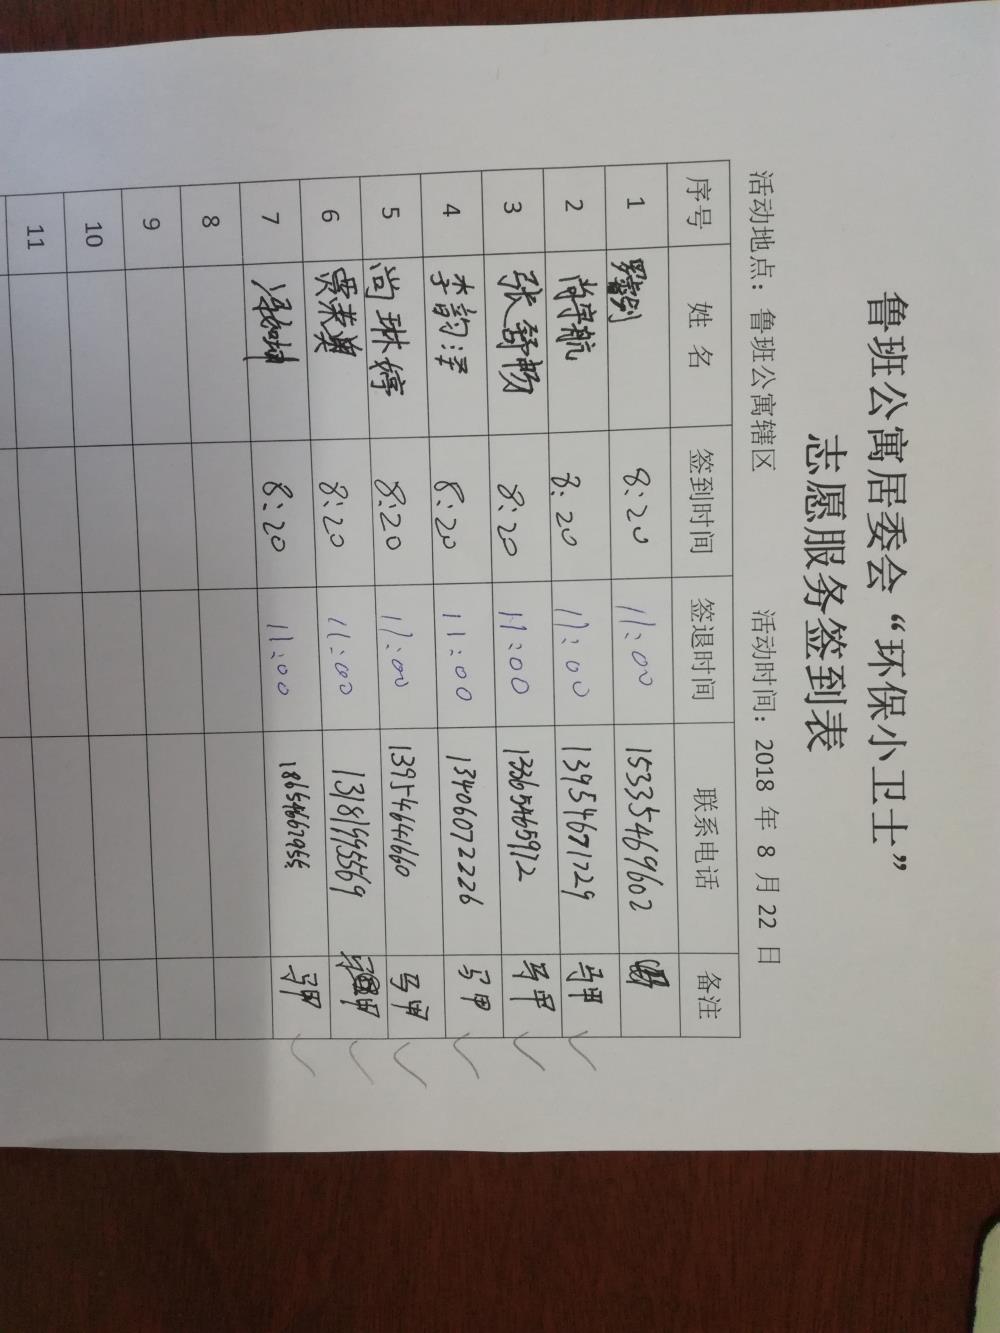 鲁班公寓居委会“环保小卫士”
志愿服务签到表
活动地点：鲁班公寓辖区 活动时间：2018 年 8 月 22 日
序号 姓 名 签到时间 签退时间 联系电话 备注
1 8:20 11:00 15335469602
2 尚宇航 8:20 11:00 13954671729 马甲
3 张舒畅 8:20 11:00 13365465912 马甲
4 李韵泽 8:20 11:00 13406072226 马甲
5 尚琳婷 8:20 11:00 13954641660 马甲
6 贾荣奥 8:20 11:00 13181995569 甲
7 8:20 11:00 18654667955 马甲
8
9
10
11